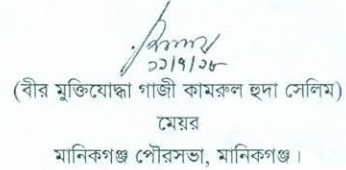 ১১/৭/১৮
(বীর মুক্তিযোদ্ধা গাজী কামরুল হুদা সেলিম)
মেয়র
মানিকগঞ্জ পৌরসভা, মানিকগঞ্জ।